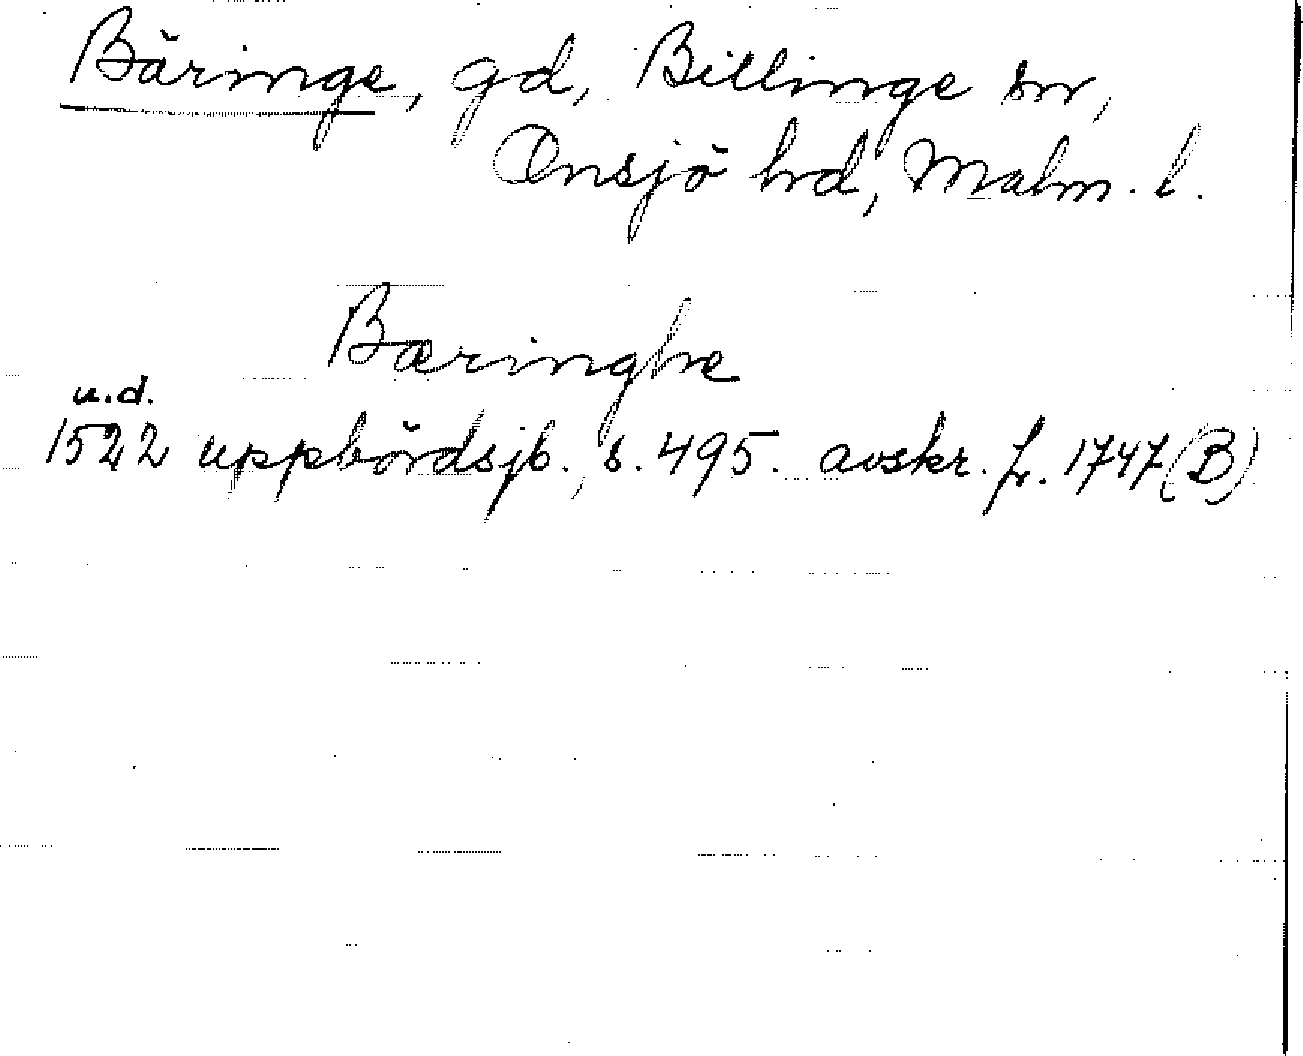 Bäringe, gd, Billinge sn,
Onsjö hrd, Malm. l.
Bæringhe
u.d.
1522 uppbördsjb., s. 495. avskr. fr. 1747 (B)